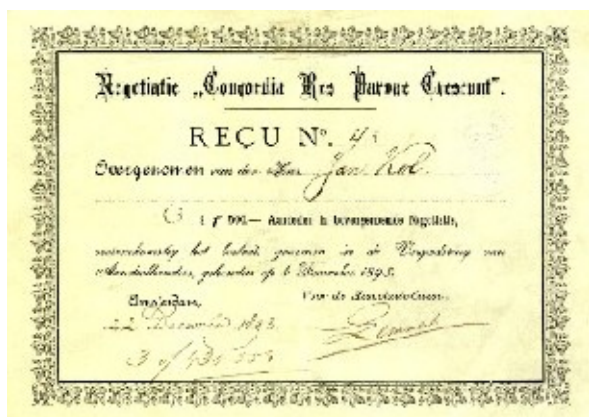 Negotiatie „Concordia Res Parvae Crescunt".
REÇU Nº. 4
Overgenomen van den Heer Jan Kol.
à ƒ 500.— Aandeelen in bovengenoemde Negotiatie,
overeenkomstig het besluit, genomen in de Vergadering van
Aandeelhouders, gehouden op 6 December 1893.
Amsterdam,
22 December 1893